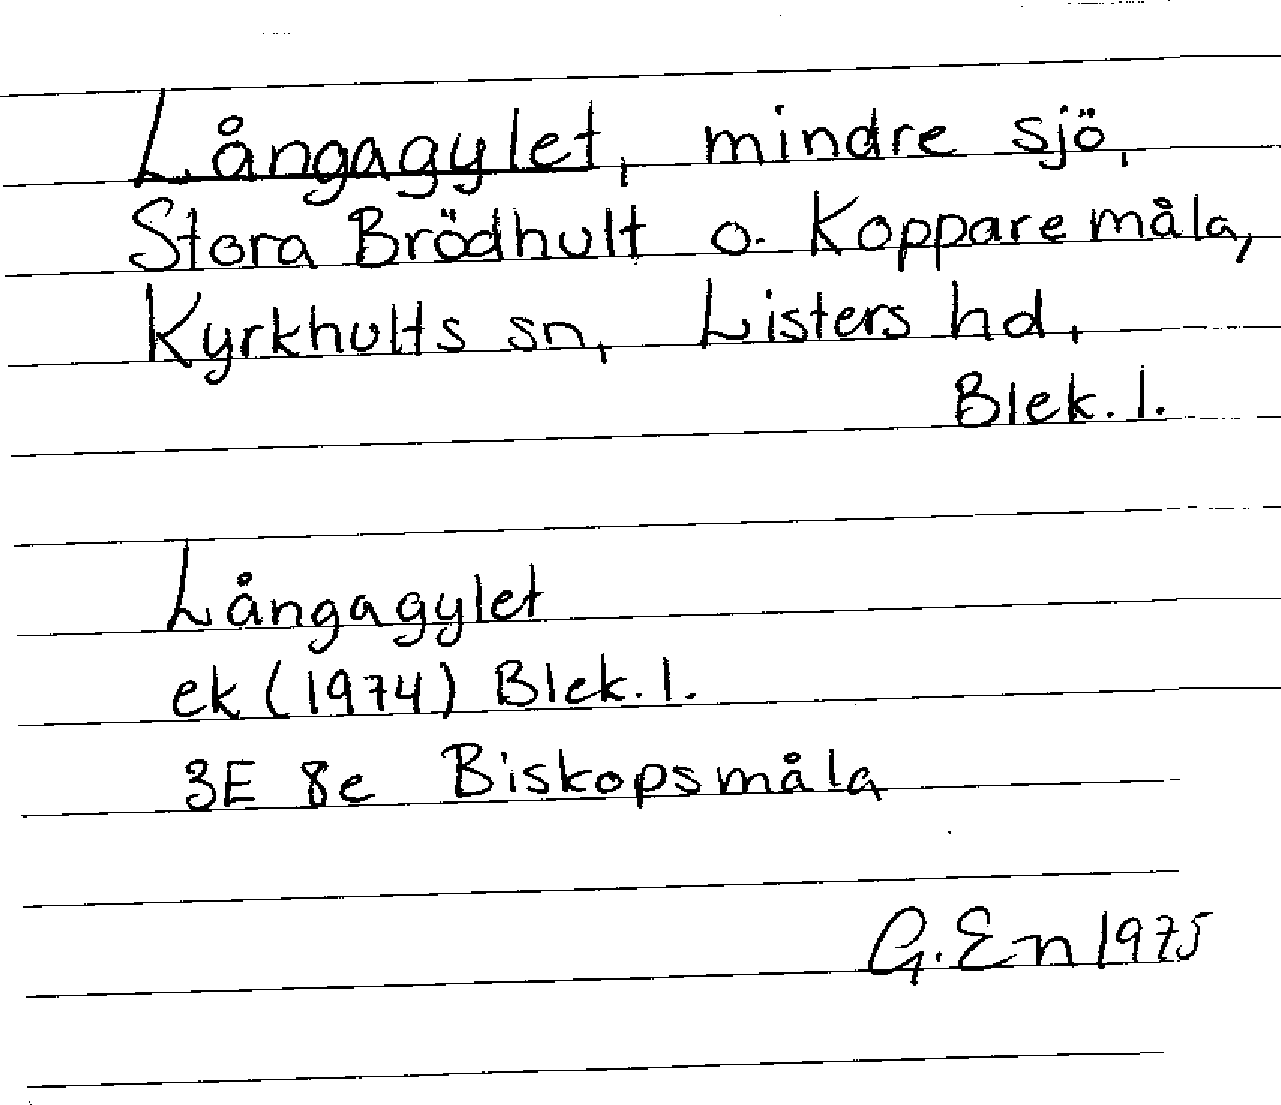 Långagylet, mindre sjö,
Stora Brödhult o. Kopparemåla,
Kyrkhults sn, Listers hd,
Blek. l.
Långagylet
ek (1974) Blek. l.
3E 8e Biskopsmåla
G. En 1975